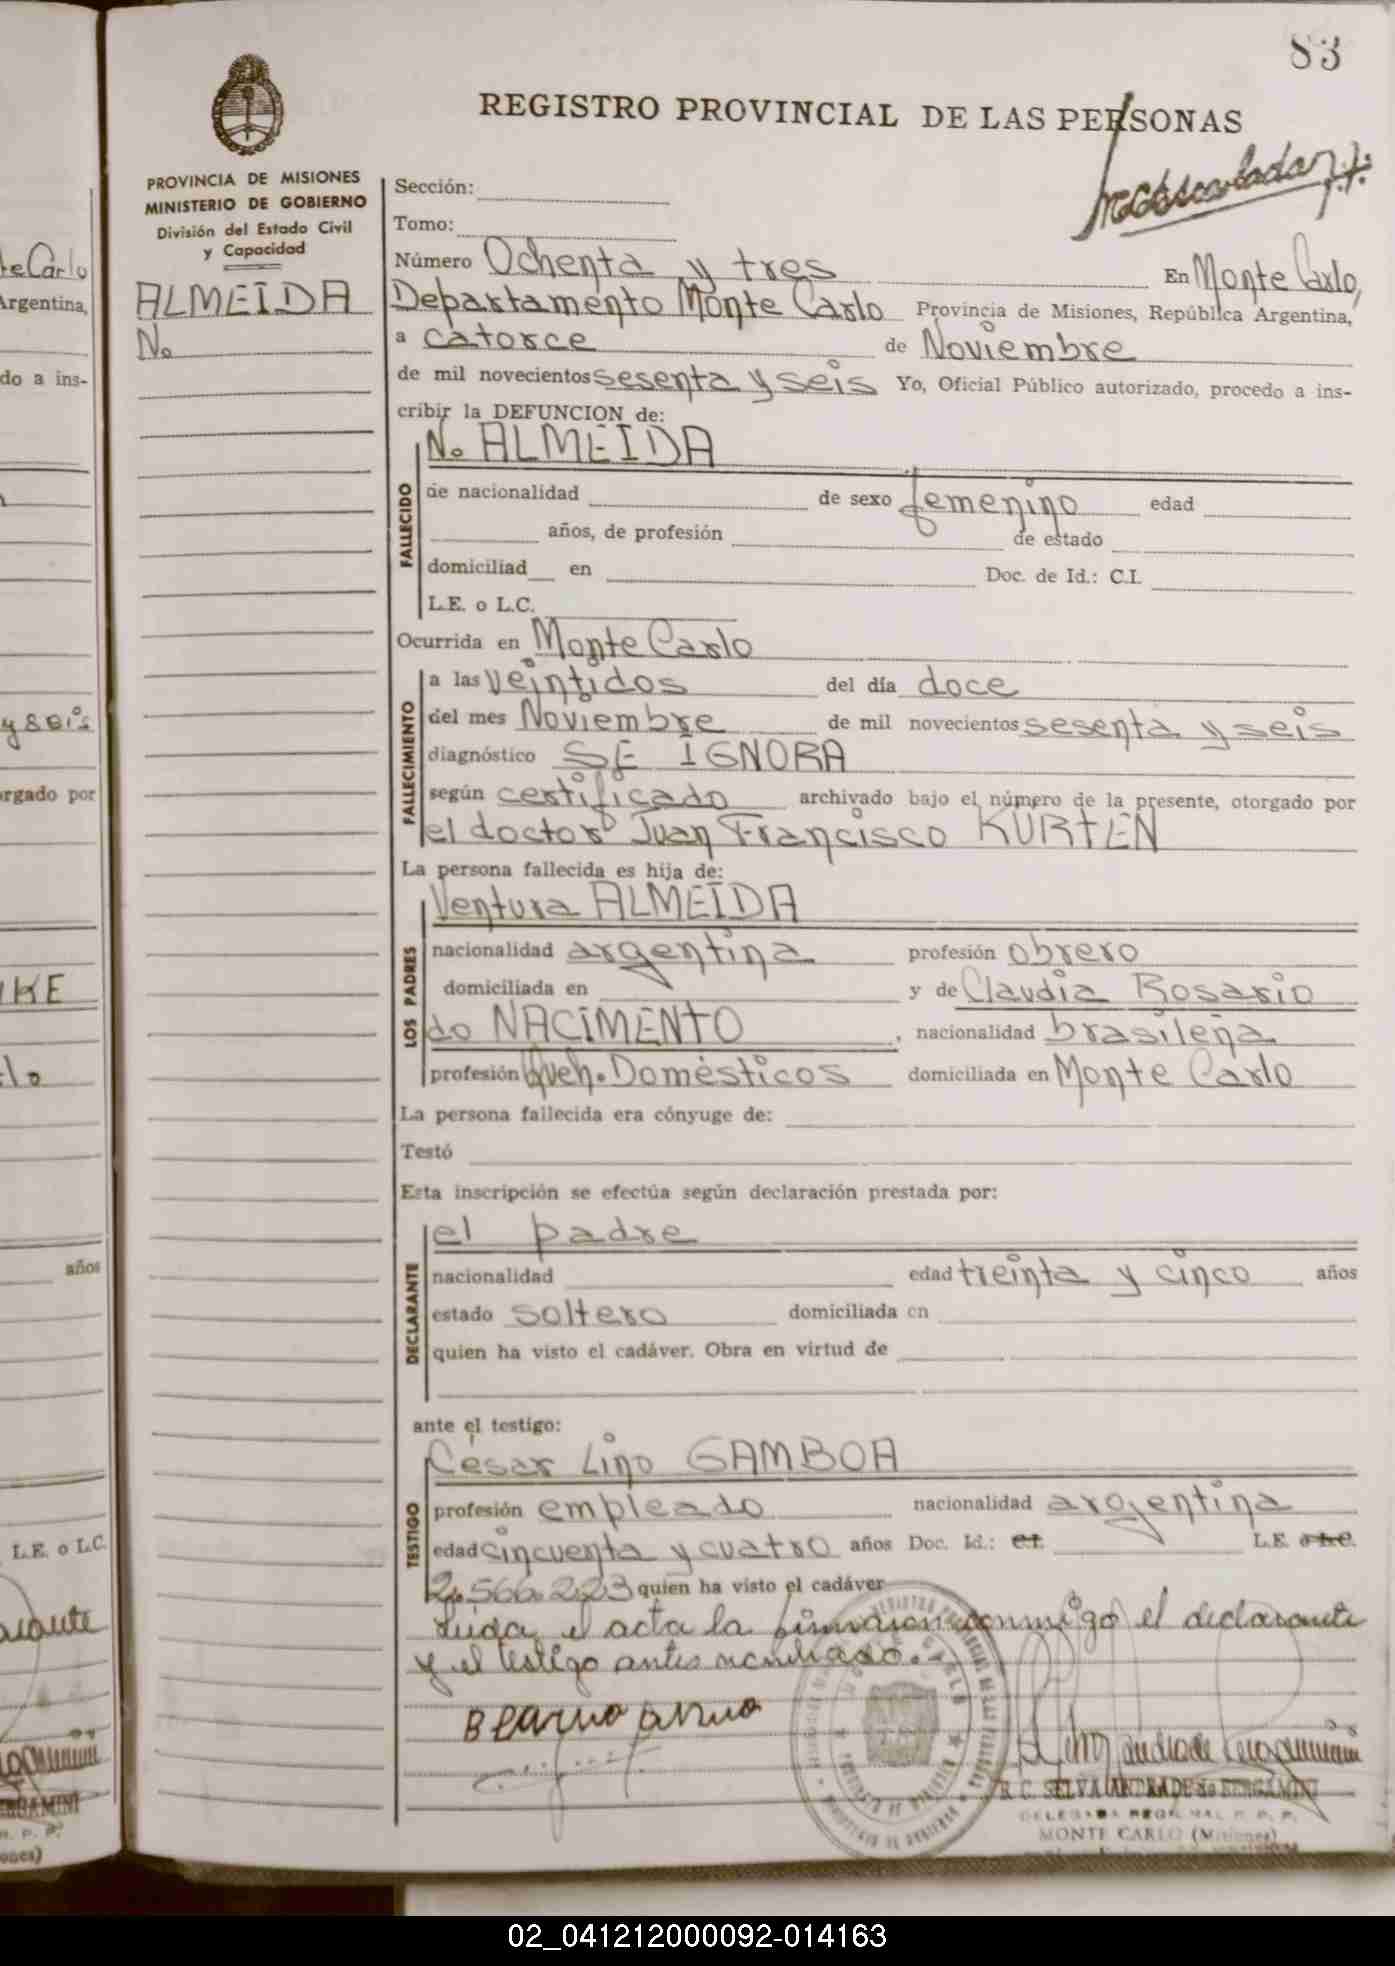 83
REGISTRO PROVINCIAL DE LAS PERSONAS
PROVINCIA DE MISIONES
MINISTERIO DE GOBIERNO
División del Estado Civil
y Capacidad
ALMEIDA
No
Sección:
Tomo:
Número Ochenta y tres En Monte Carlo,
Departamento Monte Carlo Provincia de Misiones, República Argentina,
a catorce de Noviembre
de mil novecientos sesenta y seis Yo, Oficial Público autorizado, procedo a ins-
cribir la DEFUNCION de:
No ALMEIDA
FALLECIDO
de nacionalidad de sexo femenino edad
años, de profesión de estado
domiciliad en Doc. de Id.: C.I.
L.E. o L.C.
Ocurrida en Monte Carlo
FALLECIMIENTO
a las veintidos del día doce
del mes Noviembre de mil novecientos sesenta y seis
diagnóstico SE IGNORA
según certificado archivado bajo el número de la presente, otorgado por
el doctor Juan Francisco KURTEN
La persona fallecida es hija de:
Ventura ALMEIDA
LOS PADRES
nacionalidad argentina profesión obrero
domiciliada en y de Claudia Rosario
do NACIMENTO, nacionalidad brasileña
profesión Queh. Domésticos domiciliada en Monte Carlo
La persona fallecida era cónyuge de:
Testó
Esta inscripción se efectúa según declaración prestada por:
el padre
DECLARANTE
nacionalidad edad treinta y cinco años
estado soltero domiciliada en
quien ha visto el cadáver. Obra en virtud de
ante el testigo:
César Lino GAMBOA
TESTIGO
profesión empleado nacionalidad argentina
edad cincuenta y cuatro años Doc. Id.: C.I. L.E. o L.C.
2.566.223 quien ha visto el cadáver
Leída el acta la firmaron conmigo el declarante
y el testigo antes mencionado.-
SELVA ANDRADE de BERGAMINI
DELEGADA REGIONAL R. P. P.
MONTE CARLO (Misiones)
te Carlo
Argentina,
do a ins-
y seis
orgado por
KE
lo
años
L.E. o L.C.
arante
BERGAMINI
R. P. P.
ones)
02_041212000092-014163